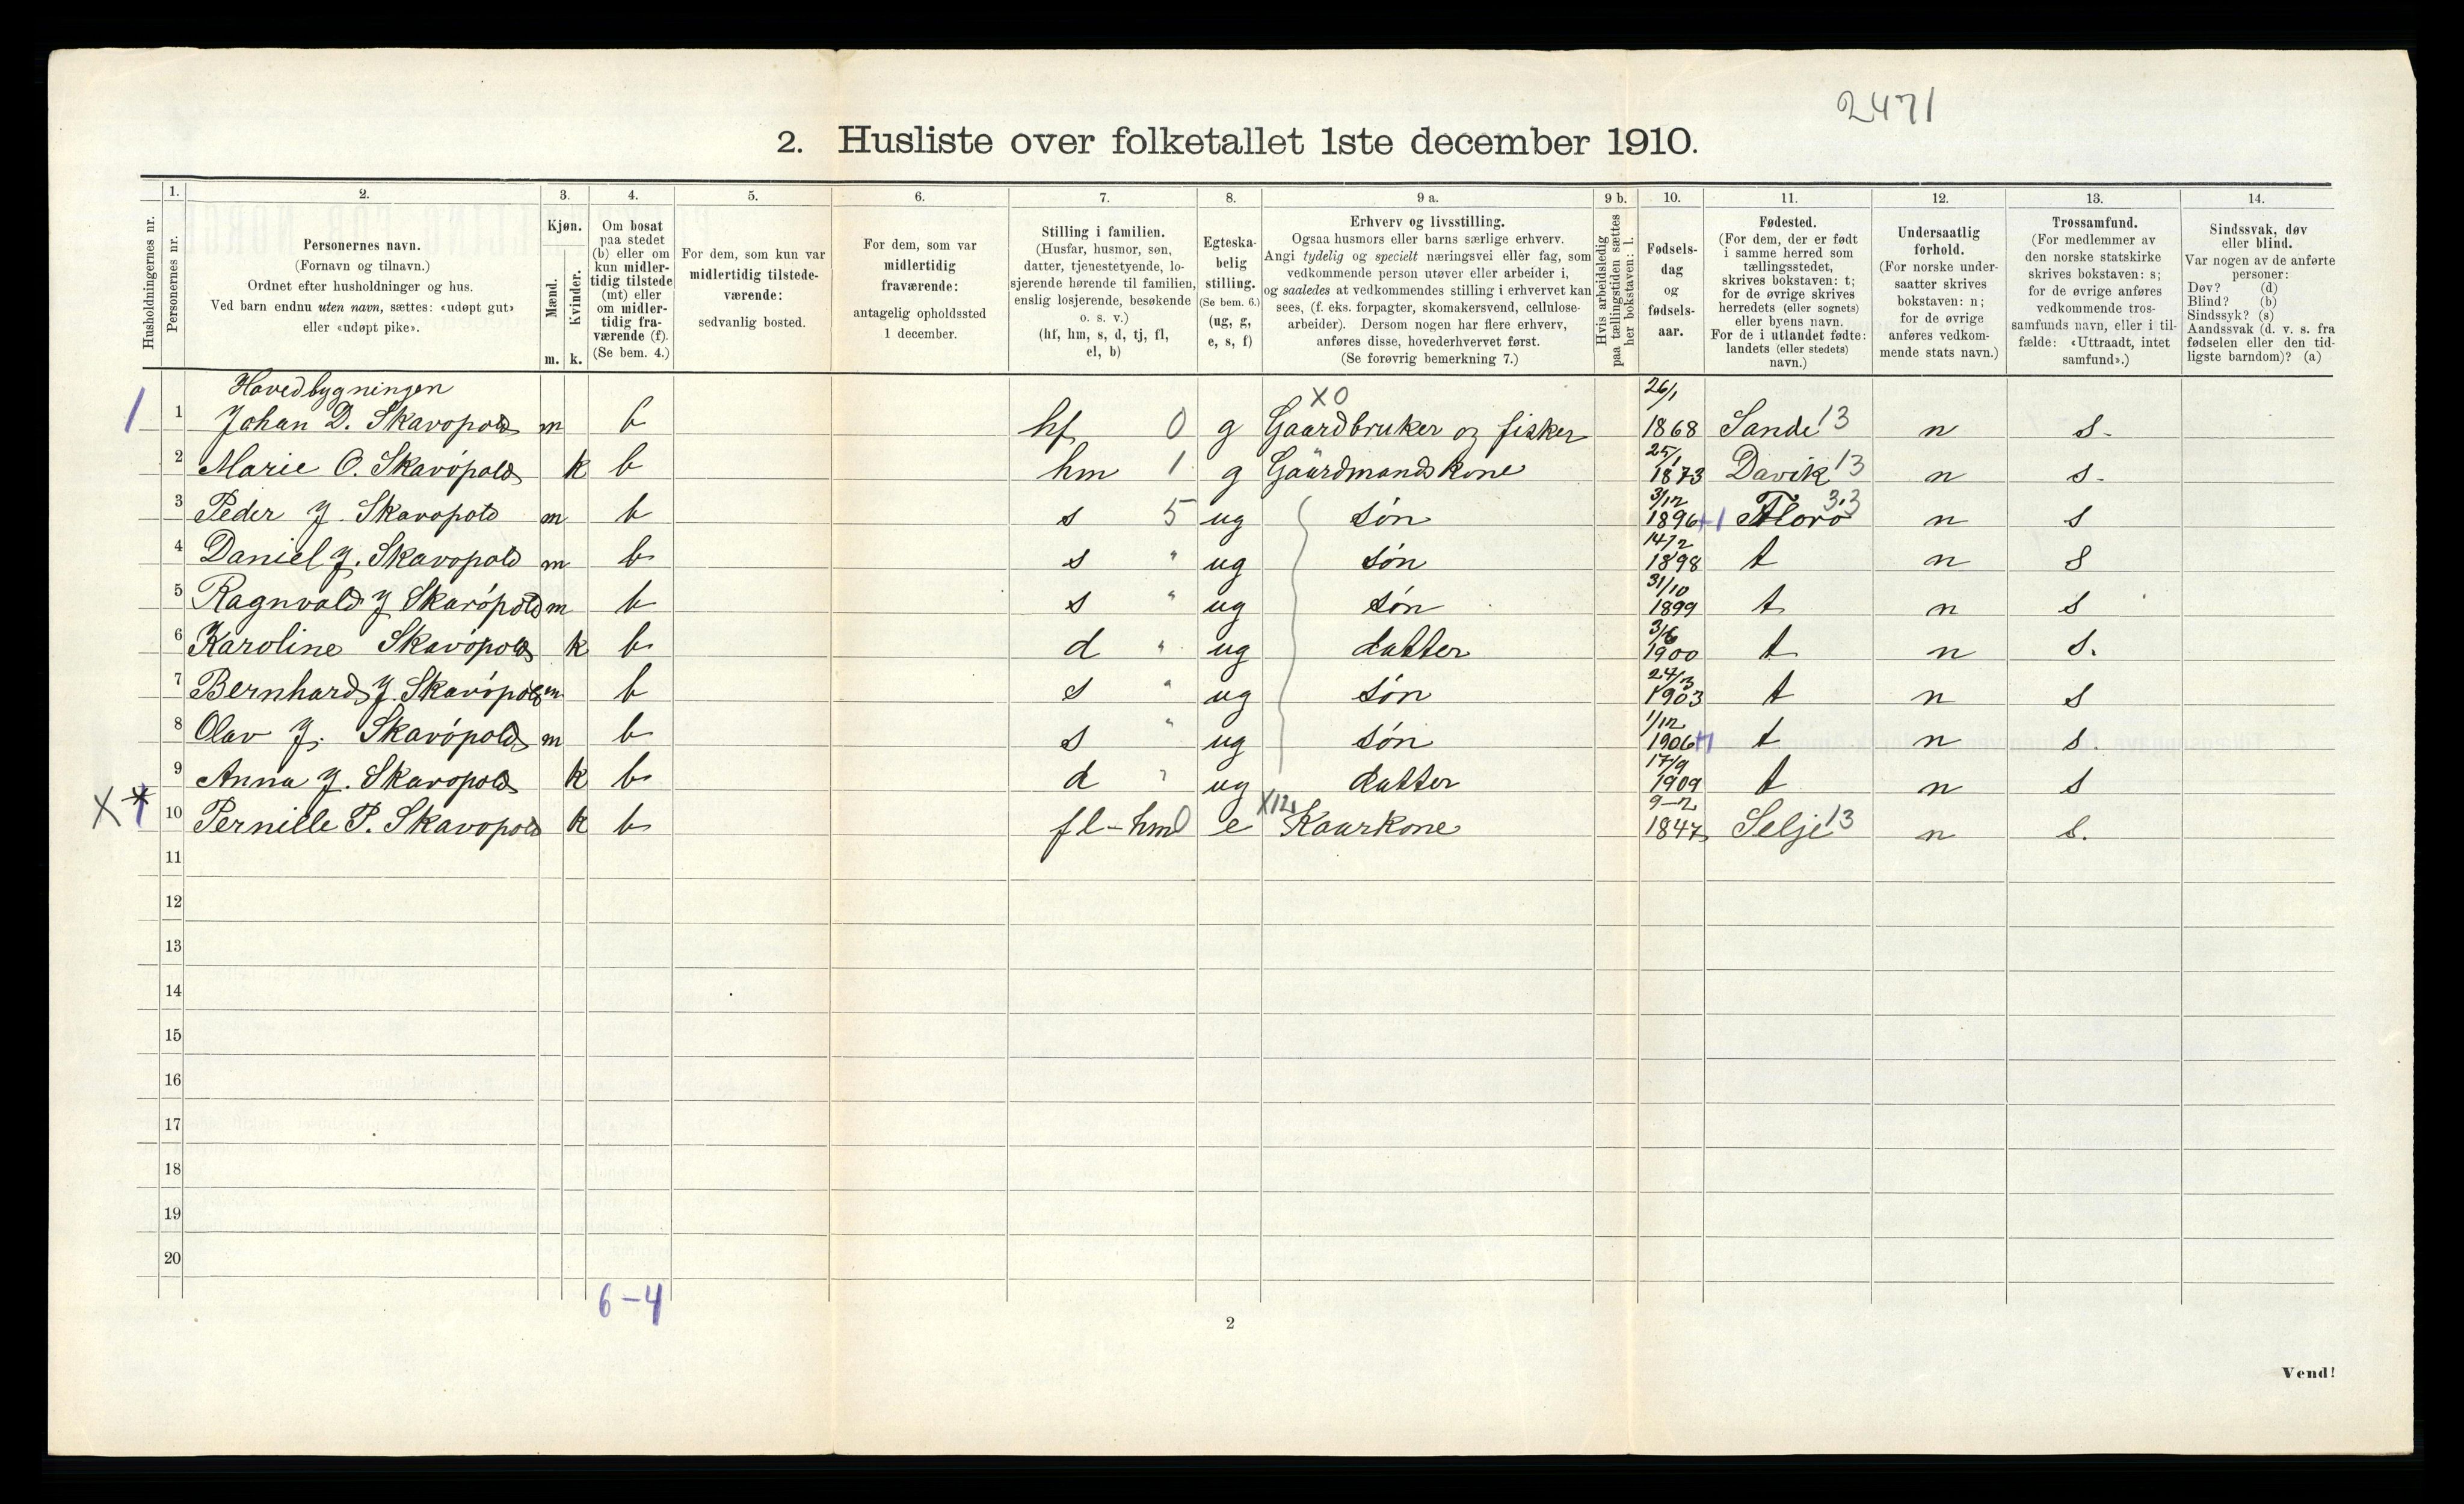 2471
2. Husliste over folketallet 1ste december 1910.
Husholdningernes nr.
1.
Personernes nr.
2.
Personernes navn.
(Fornavn og tilnavn.)
Ordnet efter husholdninger og hus.
Ved barn endnu uten navn, sættes: «udøpt gut»
eller «udøpt pike».
3.
Kjøn.
Mænd.
Kvinder.
m. k.
4.
Om bosat
paa stedet
(b) eller om
kun midler-
tidig tilstede
(mt) eller
om midler-
tidig fra-
værende (f).
(Se bem. 4.)
5.
For dem, som kun var
midlertidig tilstede-
værende:
sedvanlig bosted.
6.
For dem, som var
midlertidig
fraværende:
antagelig opholdssted
1 december.
7.
Stilling i familien.
(Husfar, husmor, søn,
datter, tjenestetyende, lo-
sjerende hørende til familien,
enslig losjerende, besøkende
o. s. v.)
(hf, hm, s, d, tj, fl,
el, b)
8.
Egteska-
belig
stilling.
(Se bem. 6.)
(ug, g,
e, s, f)
9 a.
Erhverv og livsstilling.
Ogsaa husmors eller barns særlige erhverv.
Angi tydelig og specielt næringsvei eller fag, som
vedkommende person utøver eller arbeider i,
og saaledes at vedkommendes stilling i erhvervet kan
sees, (f. eks. forpagter, skomakersvend, cellulose-
arbeider). Dersom nogen har flere erhverv,
anføres disse, hovederhvervet først.
(Se forøvrig bemerkning 7.)
9 b.
Hvis arbeidsledig
paa tællingstiden sættes
her bokstaven: l.
10.
Fødsels-
dag
og
fødsels-
aar.
11.
Fødested.
(For dem, der er født
i samme herred som
tællingsstedet,
skrives bokstaven: t;
for de øvrige skrives
herredets (eller sognets)
eller byens navn.
For de i utlandet fødte:
landets (eller stedets)
navn.)
12.
Undersaatlig
forhold.
(For norske under-
saatter skrives
bokstaven: n;
for de øvrige
anføres vedkom-
mende stats navn.)
13.
Trossamfund.
(For medlemmer av
den norske statskirke
skrives bokstaven: s;
for de øvrige anføres
vedkommende tros-
samfunds navn, eller i til-
fælde: «Uttraadt, intet
samfund».)
14.
Sindssvak, døv
eller blind.
Var nogen av de anførte
personer:
Døv? (d)
Blind? (b)
Sindssyk? (s)
Aandssvak (d. v. s. fra
fødselen eller den tid-
ligste barndom)? (a)
Hovedbygningen
1 1 Johan D. Skavøpold m b hf 0 g X0 Gaardbruker og fisker 26/1 1868 Sande 13 n s.
2 Marie O. Skavøpold k b hm 1 g Gaardmandskone 25/1 1873 Davik 13 n s.
3 Peder J. Skavøpold m b s 5 ug søn 3/12 1896 +1 Florø 33 n s
4 Daniel J. Skavøpold m b s " ug søn 14/2 1898 t n s
5 Ragnvald J Skavøpold m b s " ug søn 31/10 1899 t n s
6 Karoline J Skavøpold k b d " ug datter 3/6 1900 t n s.
7 Bernhard J. Skavøpold m b s " ug søn 24/3 1903 t n s
8 Olav J. Skavøpold m b s " ug søn 1/12 1906 +1 t n s.
9 Anna J. Skavøpold k b d " ug datter 17/9 1909 t n s
X * 1 10 Pernille P. Skavøpold k b fl-hm 0 e X12 Kaarkone 9-2 1847 Selje 13 n s.
11
12
13
14
15
16
17
18
19
20
6-4
2
Vend!